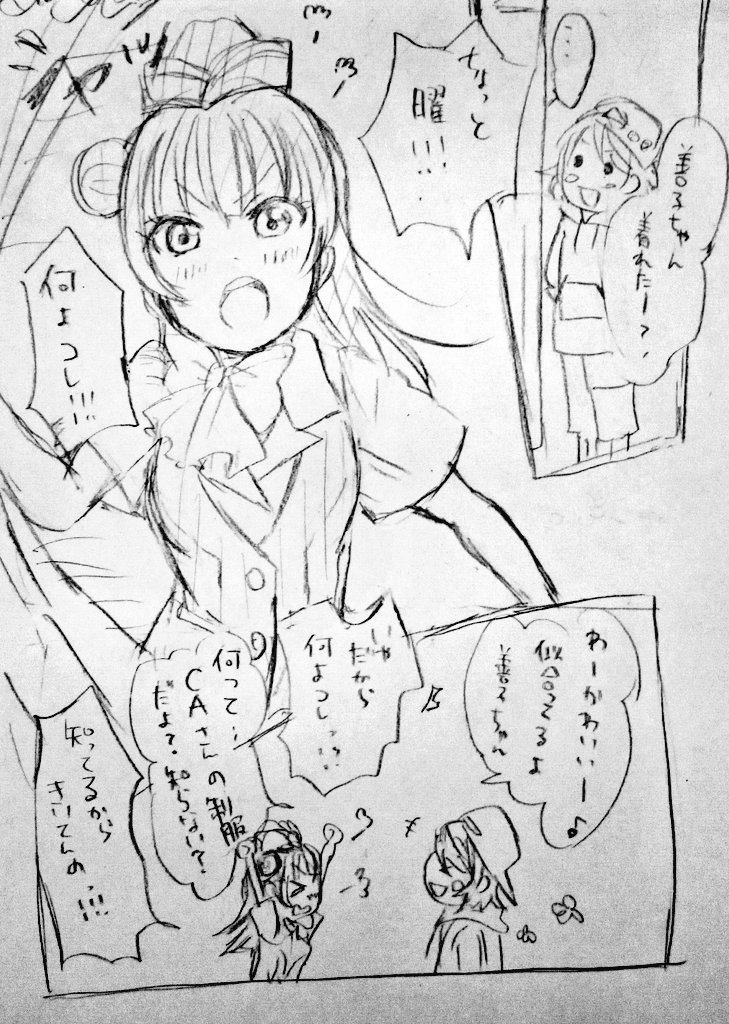 …
善子ちゃん
着れたー?
ちょっと
曜!!!
何よコレ!!!
わーかわいいー
似合ってるよ
善子ちゃん
いや
だから
何よコレっ!?
何って…
CAさんの制服
だよ?知らない?
知ってるから
きいてんのっ!!!